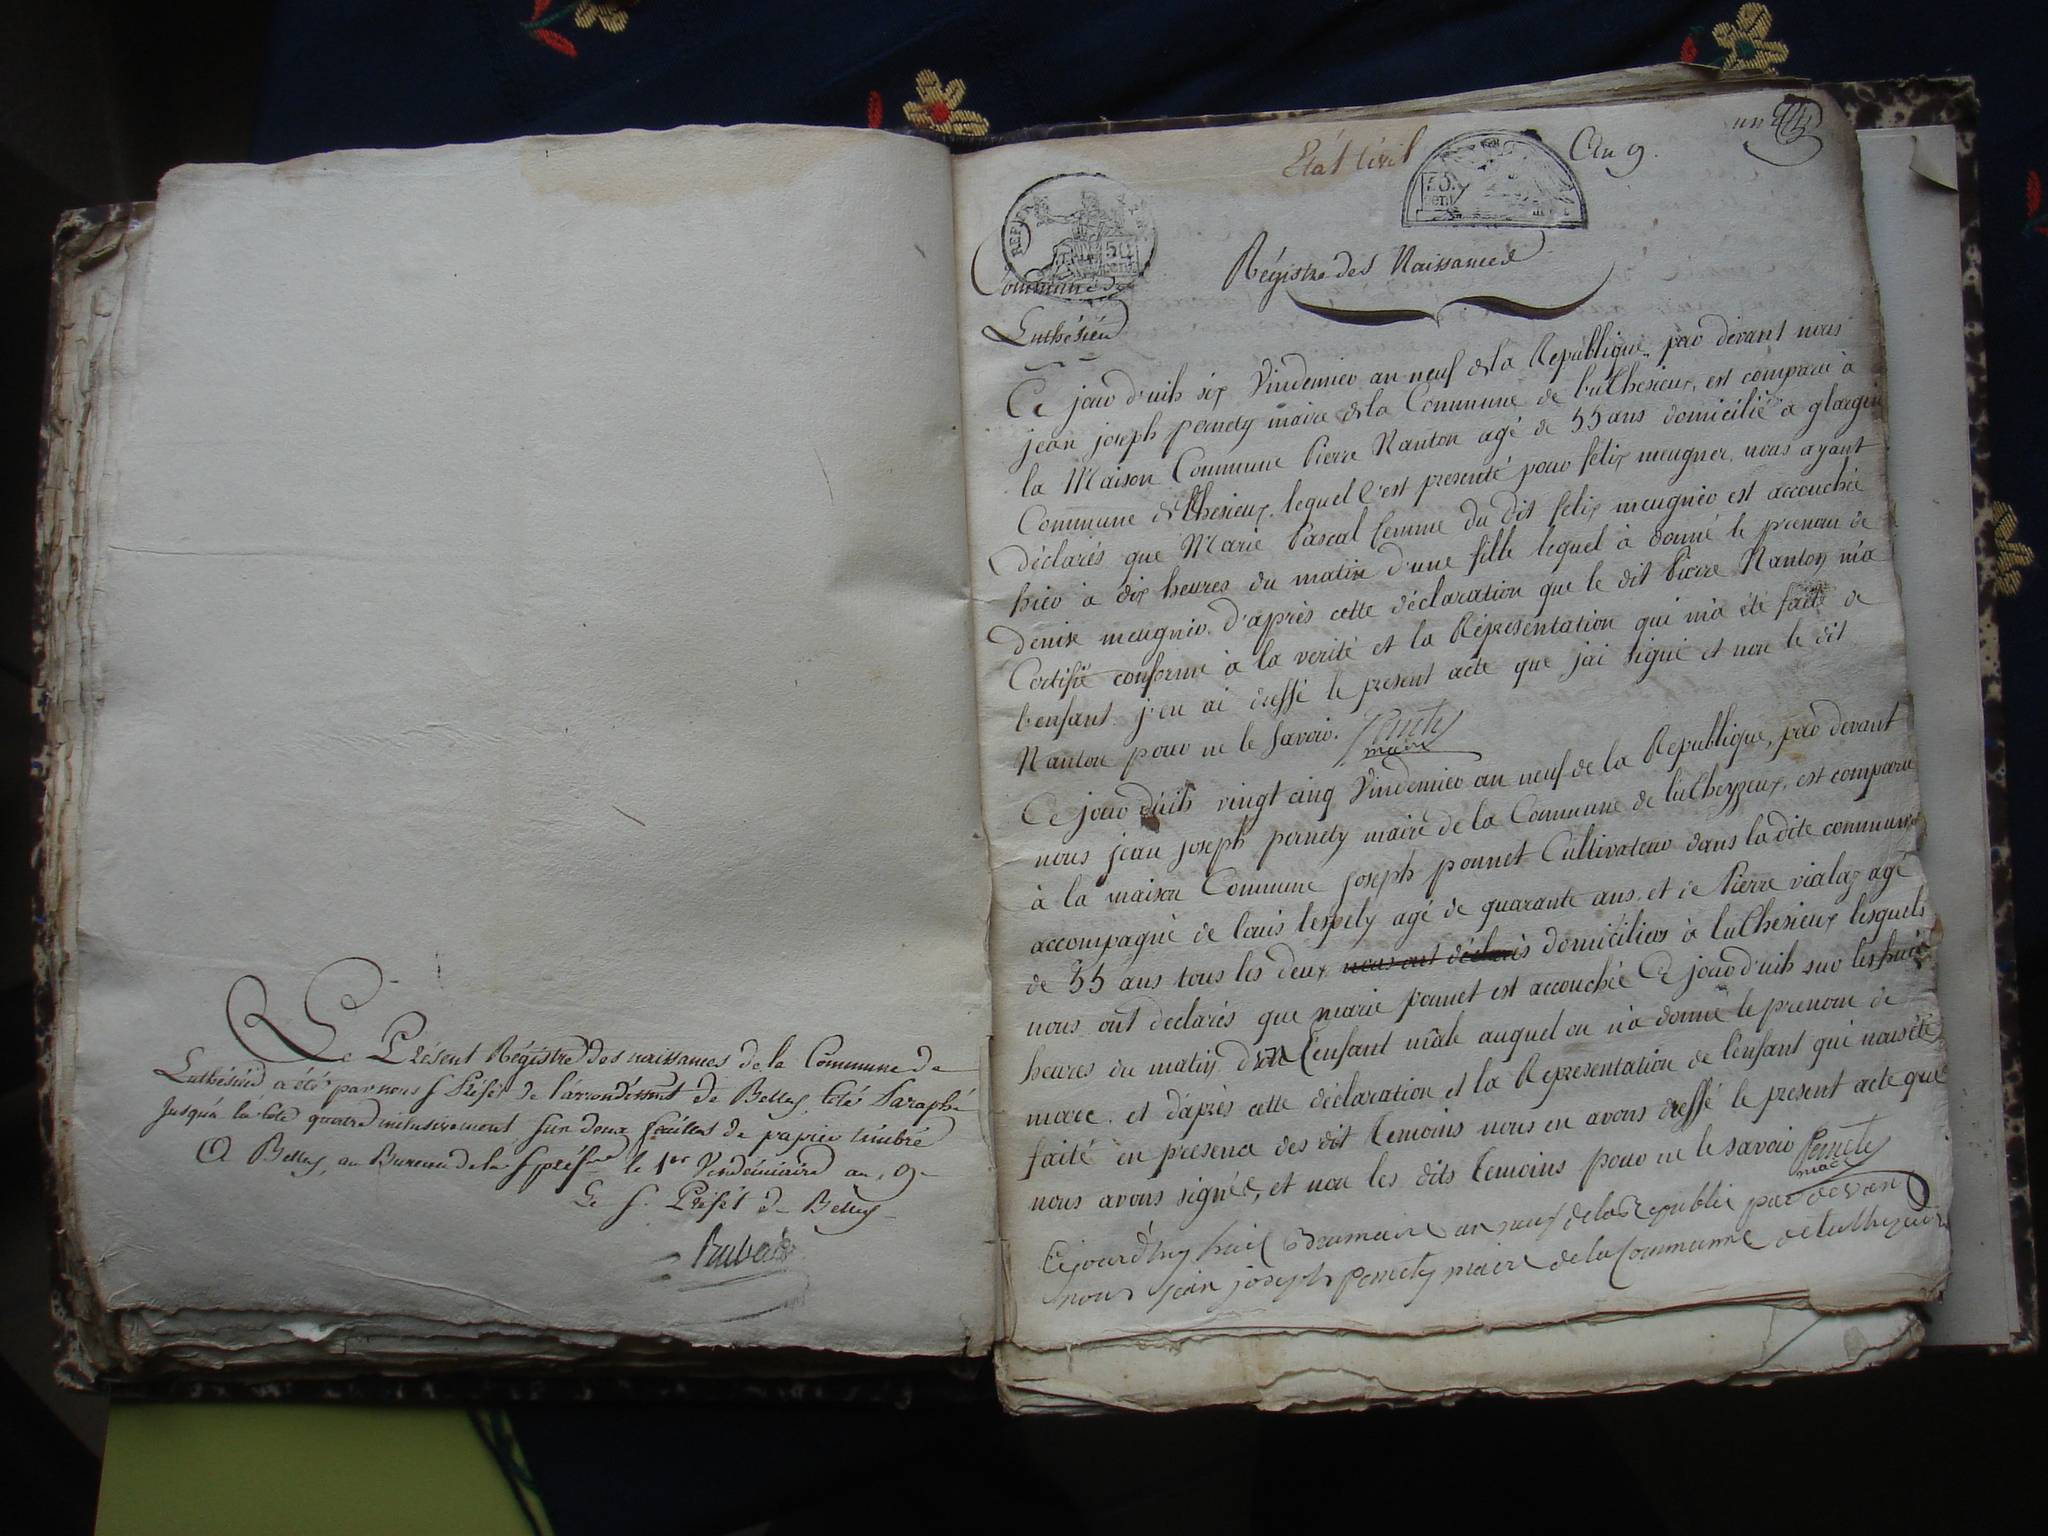 Le Présent Régistre des naissances de la Commune de
Luthésieu a été par nous S. Préfet de l'arrondissmt de Belley, coté & paraphé
jusqu'à la cote quatre inclusivement sur deux feuilles de papier timbré
A Belley, au Bureau de la S. préfre le 1er Vendémiaire an 9e
Le S. Préfet de Belley
Etat Civil
An 9.
un
REPUB
50
cent
Régistre des Naissances
Commune de
Luthésieu
Ce jour d'uih six Vindemier an neuf de la République, par devant nous
jean joseph pernety maire de la Commune de luthesieux, est comparu à
la Maison Commune Pierre Nanton agé de 55 ans domicilié à
Commune de lhesieux, lequel c'est presenté pour félix meugner, nous ayant
déclarés que Marie Pascal femme du dit félix meugnier est accouchée
hier à dix heures du matin d'une fille lequel à donné le prenom de
denise meugnier. d'après cette déclaration que le dit Pierre Nanton m'a
Certifié conforme à la verité et la Réprésentation qui m'a été faite de
l'enfant j'en ai dressé le present acte que j'ai signé et non le dit
Nanton pour ne le savoir. Pernety
maire
Ce jour d'uih vingt cinq Vindemier an neuf de la République, par devant
nous jean joseph pernety maire de la Commune de lutheyzeux, est comparu
à la maison Commune joseph ponnet Cultivateur dans la dite commune
accompagné de louis tempely agé de quarante ans, et de Pierre vialaz agé
de 55 ans tous les deux nous ont déclarés domiciliers à luthesieux lesquels
nous ont declarés que marie ponnet est accouchée Ce jour d'uih sur les huit
heures du matin d'un enfant mâle auquel on n'a donné le prenom de
marc. et d'après cette déclaration et la Représentation de l'enfant qui nous été
faité en presence des dit temoins nous en avons dressé le present acte que
nous avons signée, et non les dits temoins pour ne le savoir Pernety
maire
Cejourd'huy huit Brumaire an neuf de la Republie par devan
nous jean joseph pernety maire de la Commune de luthezieu